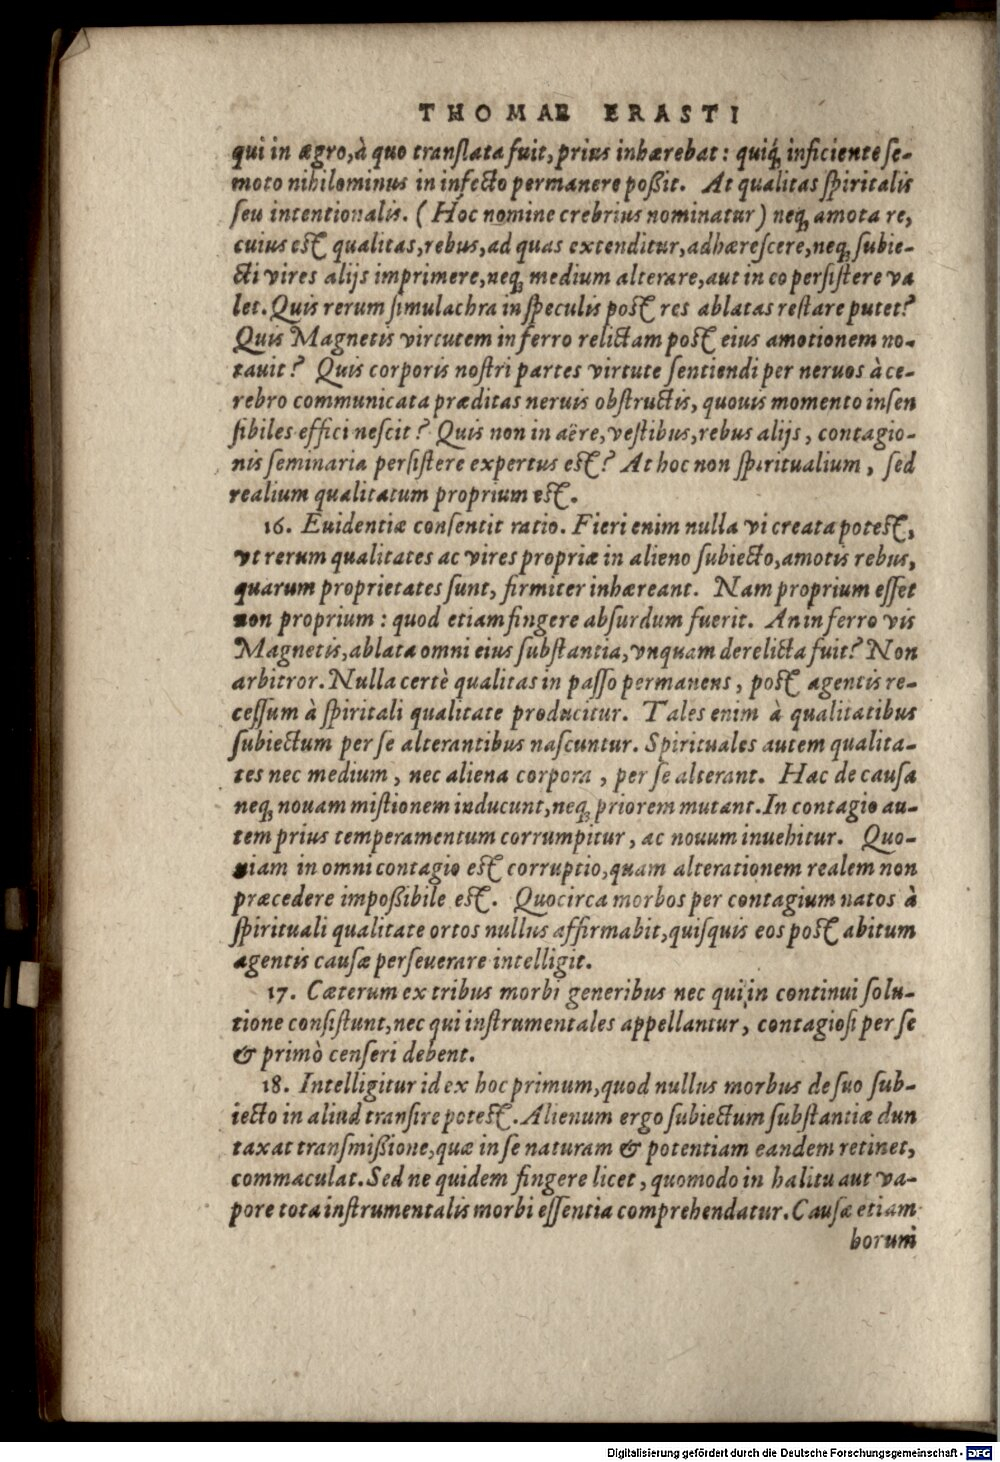 THOMAE ERASTI
qui in ægro, à quo translata fuit, prius inhærebat: quiq́; inficiente se-
moto nihilominus in infecto permanere poßit. At qualitas spiritalis
seu intentionalis. (Hoc nomine crebrius nominatur) neq; amota re,
cuius est qualitas, rebus, ad quas extenditur, adhærescere, neq; subie-
cti vires alijs imprimere, neq; medium alterare, aut in eo persistere va
let. Quis rerum simulachra in speculis post res ablatas restare putet?
Quis Magnetis virtutem in ferro relictam post eius amotionem no-
tauit? Quis corporis nostri partes virtute sentiendi per neruos à ce-
rebro communicata præditas neruis obstructis, quouis momento insen
sibiles effici nescit? Quis non in aëre, vestibus, rebus alijs, contagio-
nis seminaria persistere expertus est? At hoc non spiritualium, sed
realium qualitatum proprium est.
16. Euidentiæ consentit ratio. Fieri enim nulla vi creata potest,
vt rerum qualitates ac vires propriæ in alieno subiecto, amotis rebus,
quarum proprietates sunt, firmiter inhæreant. Nam proprium esset
non proprium: quod etiam fingere absurdum fuerit. An in ferro vis
Magnetis, ablata omni eius substantia, vnquam derelicta fuit? Non
arbitror. Nulla certè qualitas in passo permanens, post agentis re-
cessum à spiritali qualitate producitur. Tales enim à qualitatibus
subiectum per se alterantibus nascuntur. Spirituales autem qualita-
tes nec medium, nec aliena corpora, per se alterant. Hac de causa
neq; nouam mistionem inducunt, neq; priorem mutant. In contagio au-
tem prius temperamentum corrumpitur, ac nouum inuehitur. Quo-
niam in omni contagio est corruptio, quam alterationem realem non
præcedere impoßibile est. Quocirca morbos per contagium natos à
spirituali qualitate ortos nullus affirmabit, quisquis eos post abitum
agentis causæ perseuerare intelligit.
17. Cæterum ex tribus morbi generibus nec qui in continui solu-
tione consistunt, nec qui instrumentales appellantur, contagiosi per se
& primò censeri debent.
18. Intelligitur id ex hoc primum, quod nullus morbus de suo sub-
iecto in aliud transire potest. Alienum ergo subiectum substantiæ dun
taxat transmißione, quæ in se naturam & potentiam eandem retinet,
commaculat. Sed ne quidem fingere licet, quomodo in halitu aut va-
pore tota instrumentalis morbi essentia comprehendatur. Causæ etiam
horum
Digitalisierung gefördert durch die Deutsche Forschungsgemeinschaft - DFG